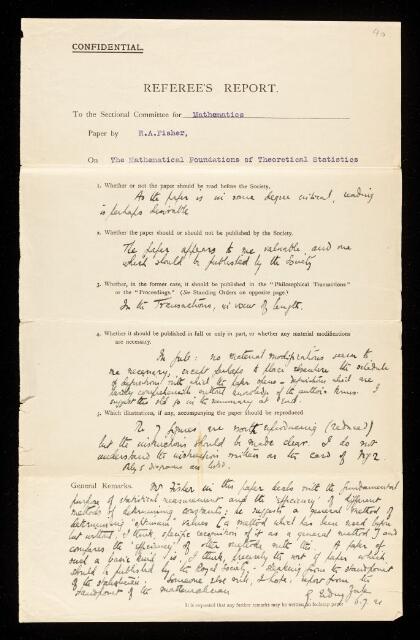 90
CONFIDENTIAL.
REFEREE'S REPORT.
To the Sectional Committee for Mathematics
Paper by R.A.Fisher,
On The Mathematical Foundations of Theoretical Statistics
1. Whether or not the paper should be read before the Society.
As the paper is in some degree critical, reading
is perhaps desirable
2. Whether the paper should or should not be published by the Society.
The paper appears to me valuable, and one
which should be published by the Society
3. Whether, in the former case, it should be published in the "Philosophical Transactions"
or the "Proceedings." (See Standing Orders on opposite page.)
In the Transactions, in view of length.
4. Whether it should be published in full or only in part, or whether any material modifications
are necessary.
In full: no material modifications seem to
me necessary, except perhaps to place elsewhere the schedule
of definitions with which the paper opens – definitions which are
hardly comprehensible without knowledge of the author's terms. I
suggest this shd go in the summary at end.
5. Which illustrations, if any, accompanying the paper should be reproduced
The 7 figures are worth reproducing (reduced)
but the instructions should be made clear. I do not
understand the instruction written on the card of Fig 2.
Only 5 diagrams as listed.
General Remarks. Mr Fisher in this paper deals with the fundamental
purpose of statistical measurement and the 'efficiency' of different
methods of determining constants; he suggests a general method of
determining 'optimum' values (a method which has been used before
but without, I think, specific recognition of it as a general method) and
compares the 'efficiency' of other methods with this. A paper of
such a basic kind is, I think, precisely the sort of paper which
should be published by the Royal Society. Speaking from the standpoint
of the statistician: someone else will, I hope, report from the
standpoint of the mathematician
G. Udny Yule
It is requested that any further remarks may be written on foolscap paper
6.7.21